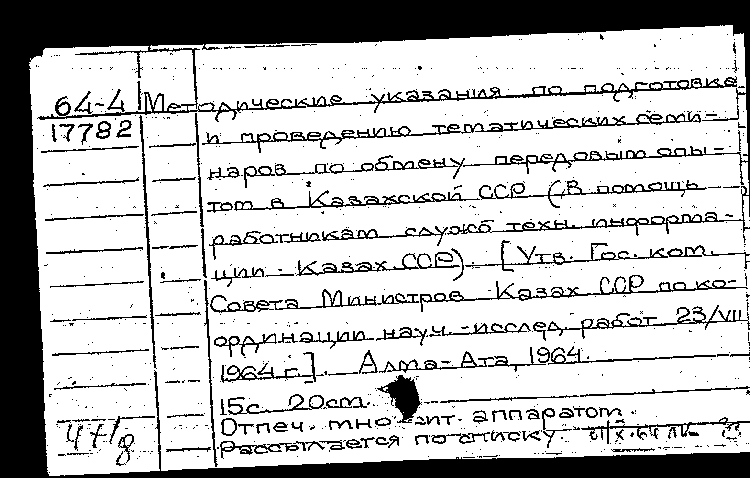 64-4 Методические указания по подготовке
17782 и проведению тематических семи-
наров по обмену передовым опы-
том в Казахской ССР (В помощь
работникам служб техн. информа-
ции Казах. ССР). [Утв. Гос. ком.
Совета Министров Казах ССР по ко-
ординации науч.-исслед. работ 23/VII
1964 г.]. Алма-Ата, 1964.
15с. 20см.
Отпеч. множит. аппаратом.
Рассылается по списку.